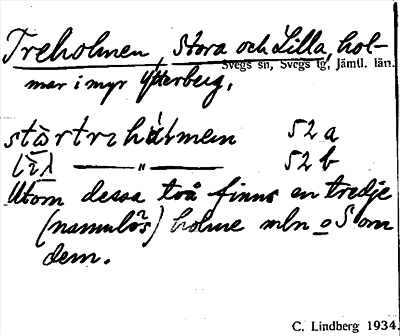 Treholmen, Stora och Lilla, hol-
Svegs sn, Svegs tg, Jämtl. län.
mar i myr Ytterberg.
52 a
52 b
Utom dessa två finns en tredje
(namnlös) holme mln o S om
dem.
C. Lindberg 1934.